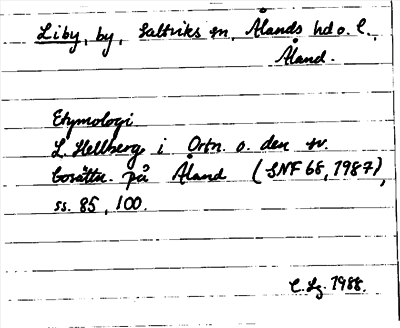 Liby, by, Saltviks sn, Ålands hd o. l.,
Åland.
Etymologi
L. Hellberg i Ortn. o. den sv.
bosättn. på Åland (SNF 68, 1987),
ss. 85, 100.
C. Lg. 1988.